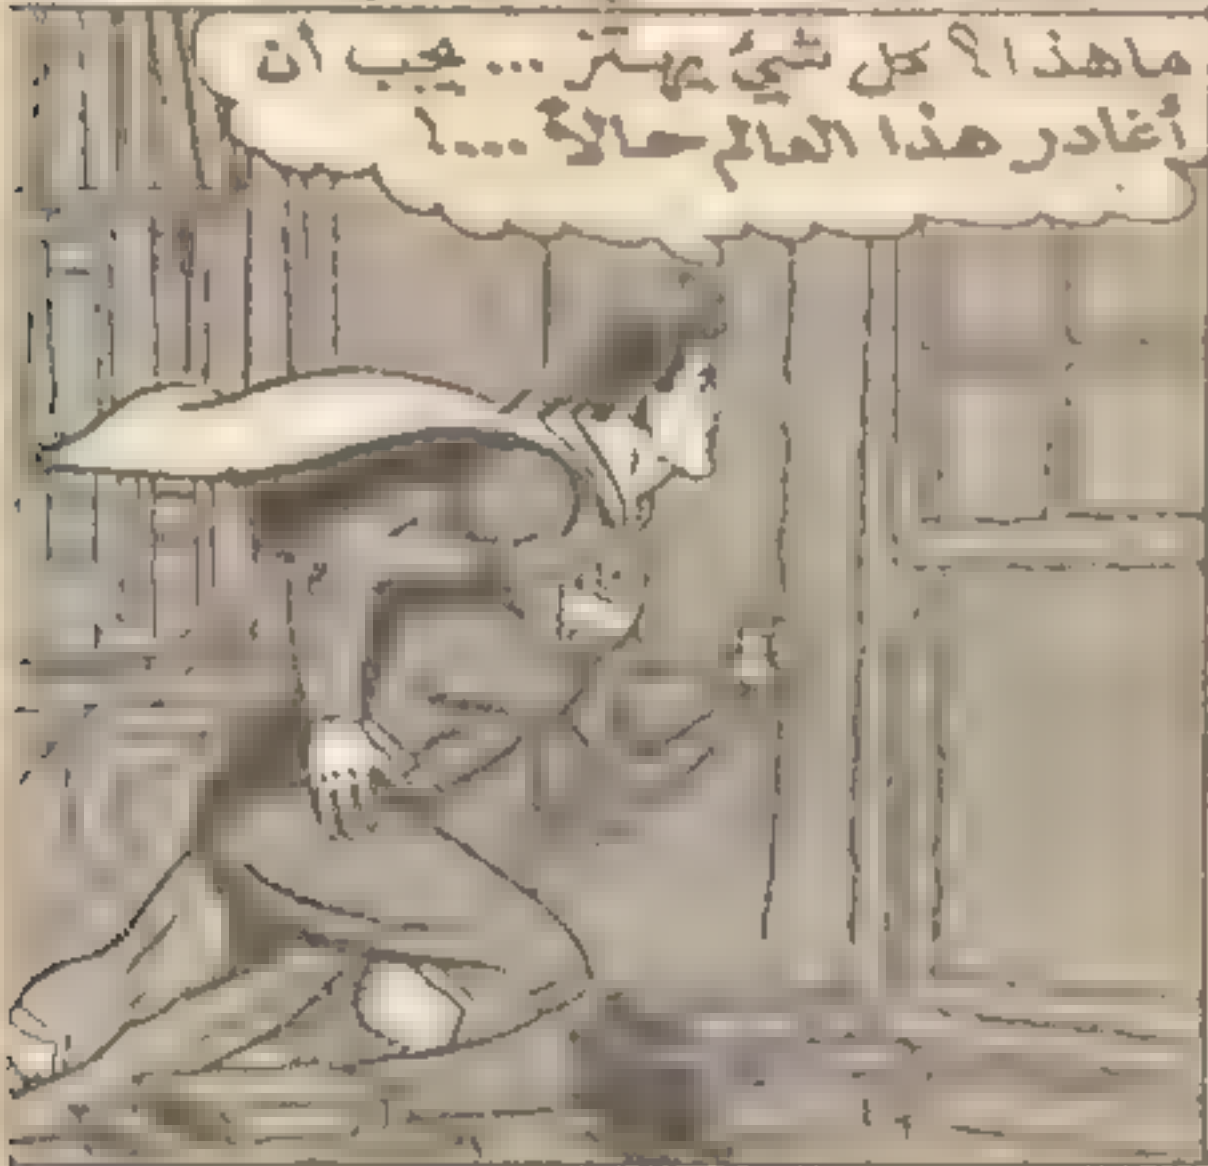 ماهذا؟ كل شيئ يهتز ... يجب أن
أغادر هذا العالم حالاً ...!